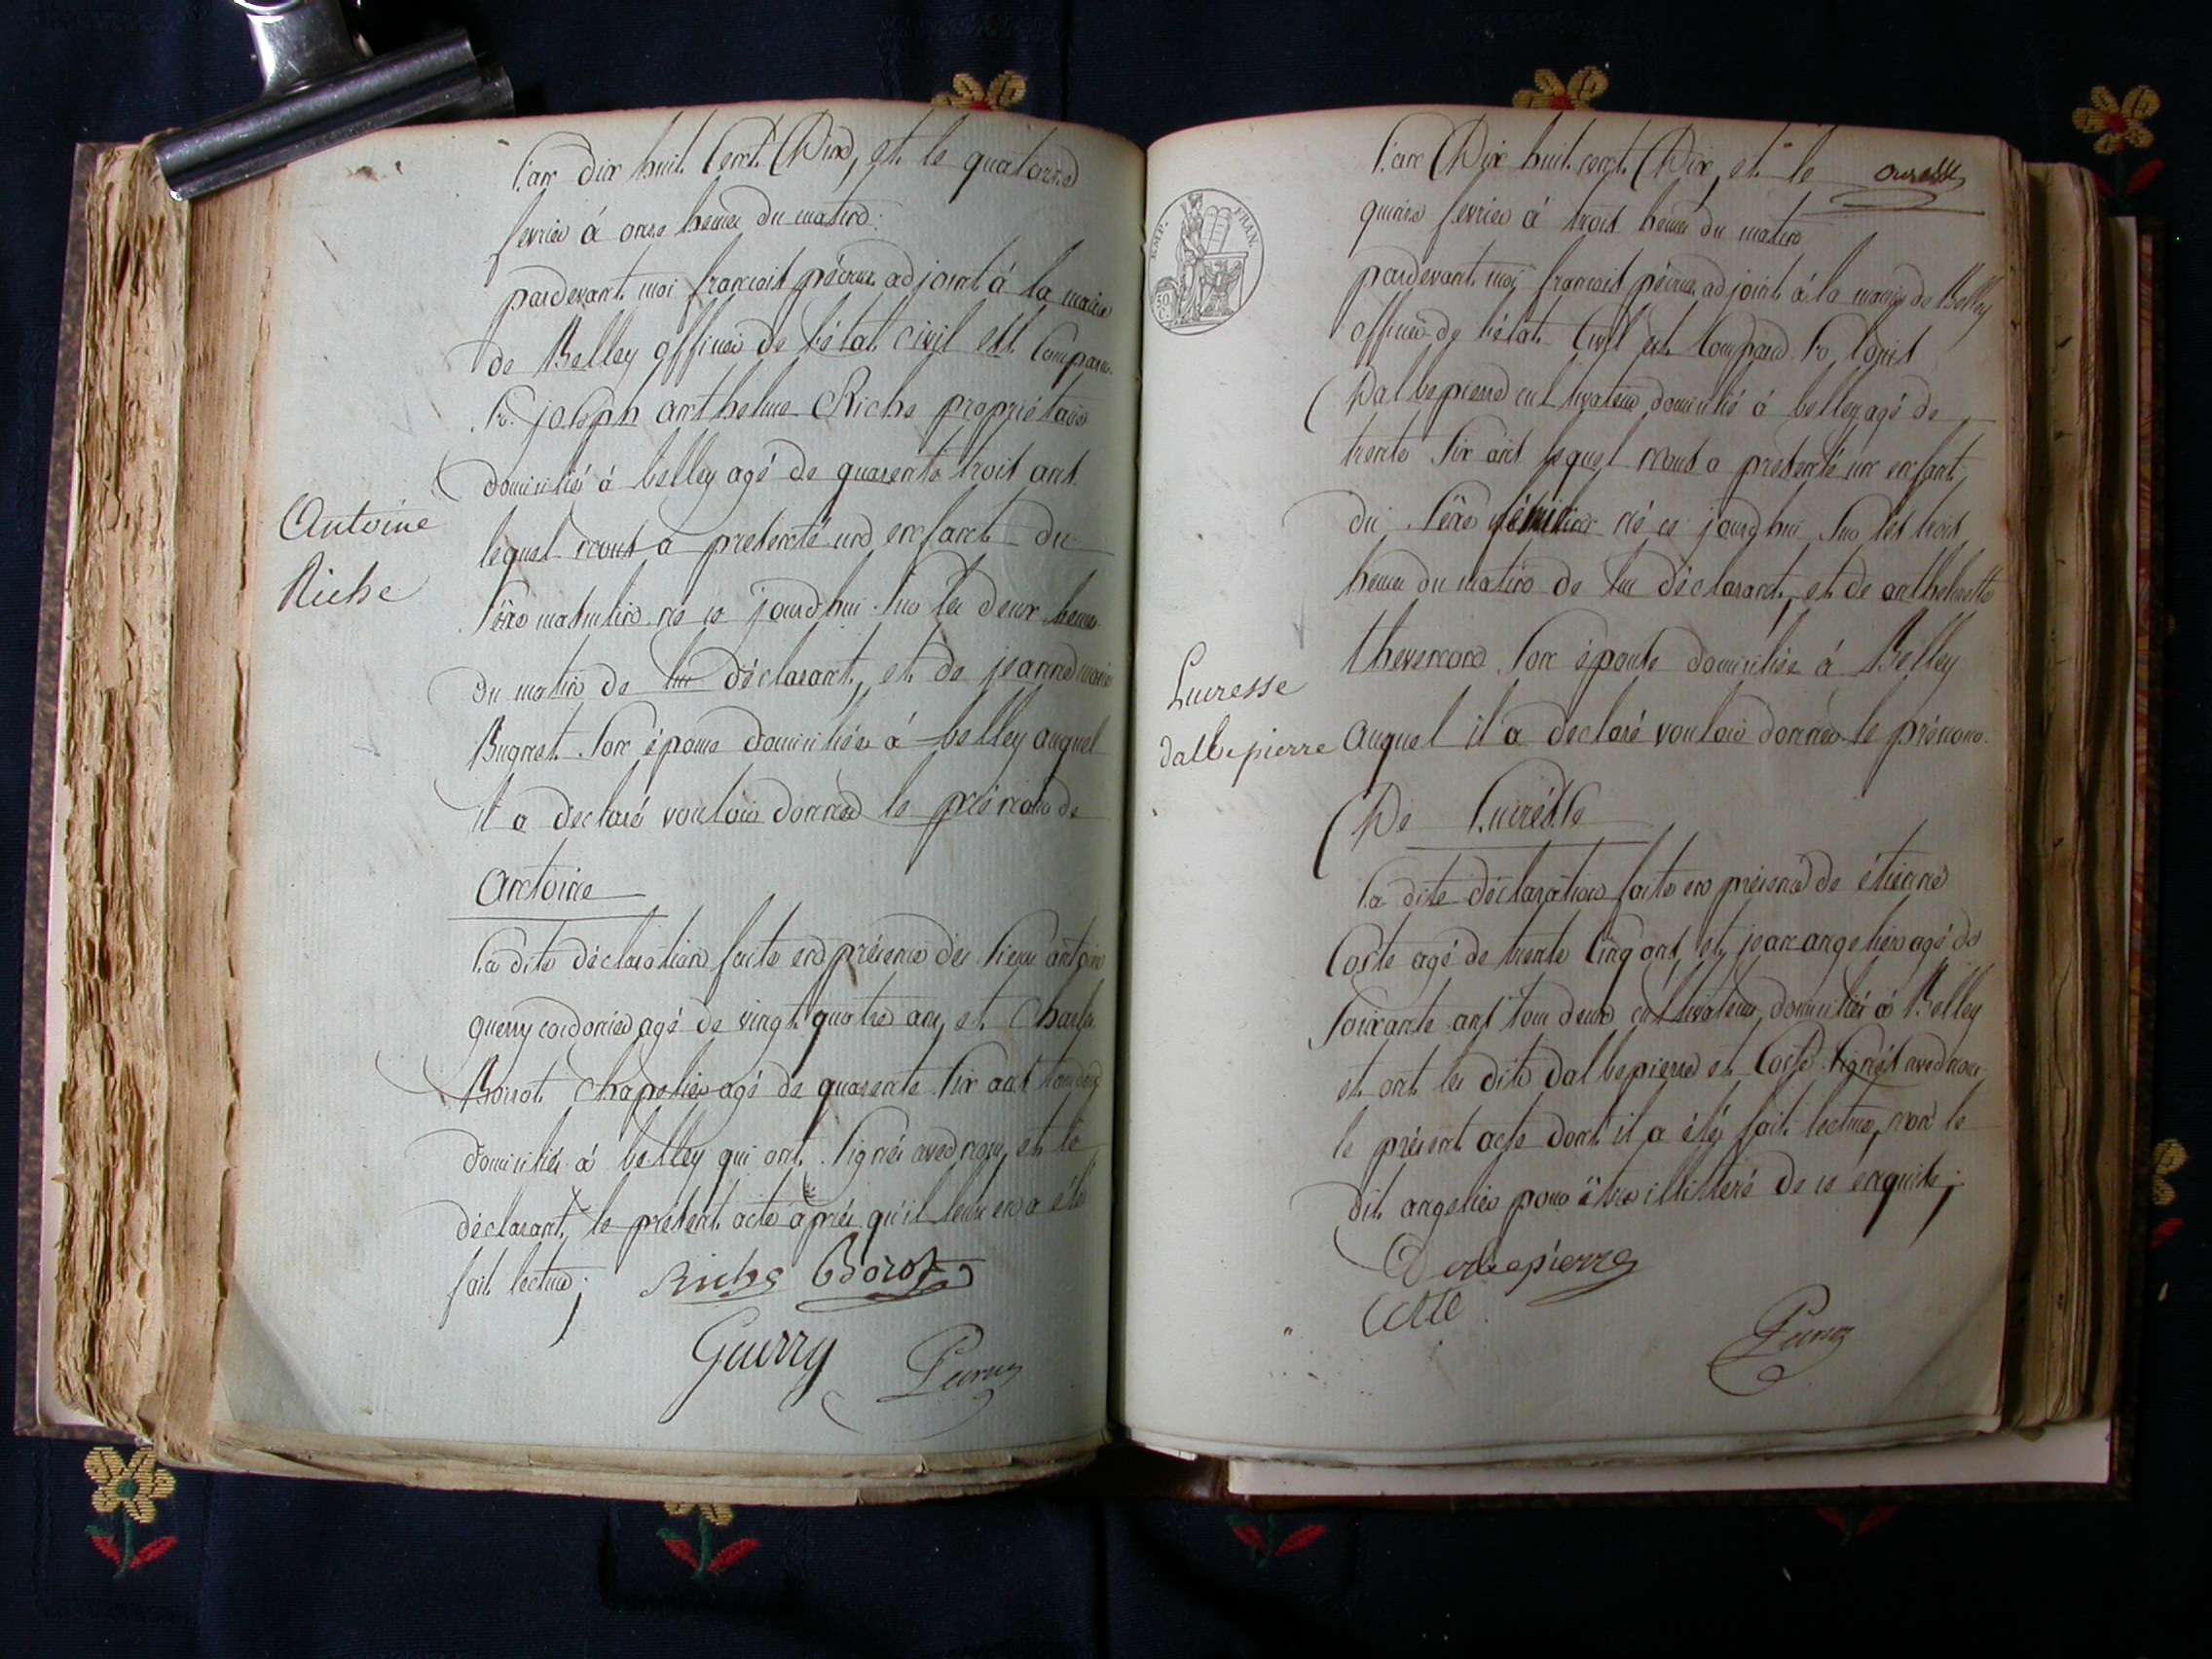 l'an dix huit Cent Dix, et le quatorze
fevrier à onze heures du matin.
pardevant moi françois pécruz adjoint à la mairie
de Belley officier de l'état civil est Comparu
Sr. joseph anthelme Riche propriétaire
domicilié à belley agé de quarente trois ans
lequel nous a presenté un enfant du
Antoine
Riche
sèxe masculin né ce jourd'hui sur les deux heures
du matin de lui déclarant, et de jeanne marie
Bugnet son épouse domiciliée à belley auquel
il a declaré vouloir donner le prénom de
Antoine
la dite déclaration faite en présence des sieurs antoine
guerry cordonier agé de vingt quatre ans, et Charles
Borrot chapelier agé de quarente six ans tous deux
domiciliés à belley qui ont signés avec nous, et le
déclarant, le présent acte après qu'il leur en a été
fait lecture;
Riche Borot
Guerry
l'an Dix huit cent Dix, et le onze
quinze fevrier à trois heures du matin
pardevant moi françois pécruz adjoint à la mairie de Belley
officier de l'état Civil est Comparu Sr. louis
EMP. FRAN.
50 C.
Dalbepierre cultivateur domicilié à belley agé de
trente six ans lequel nous a presenté un enfant
du sèxe féminin né ce jourd'hui sur les trois
heures du matin de lui déclarant, et de anthelmette
thevenond son épouse domiciliée à Belley
Lucresse
dalbepierre
auquel il a declaré vouloir donner le prénom
De Lucrésse
la dite déclaration faite en présence de étienne
Coste agé de trente Cinq ans, et jean angelier agé de
soixante ans tous deux cultivateurs domiciliés à Belley
et ont les dits dalbepierre et Coste signés avec nous
le présent acte dont il a été fait lecture, non le
dit angelier pour être illitteré de ce enquis;
Dalbepierre
Coste